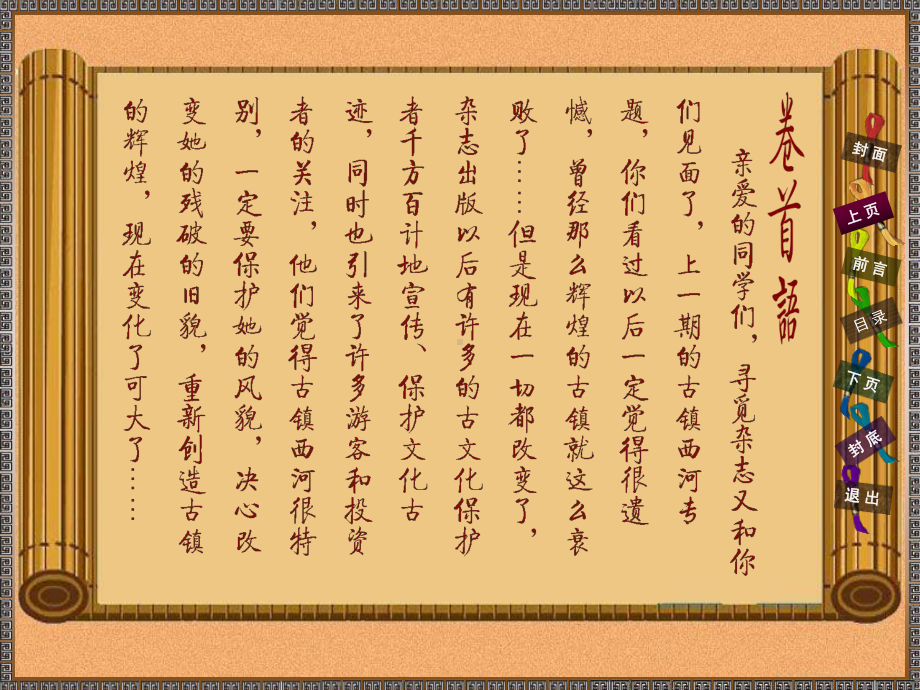 卷首語
亲爱的同学们，寻觅杂志又和你
们见面了，上一期的古镇西河专
题，你们看过以后一定觉得很遗
憾，曾经那么辉煌的古镇就这么衰
败了……但是现在一切都改变了，
杂志出版以后有许多的古文化保护
者千方百计地宣传、保护文化古
迹，同时也引来了许多游客和投资
者的关注，他们觉得古镇西河很特
别，一定要保护她的风貌，决心改
变她的残破的旧貌，重新创造古镇
的辉煌，现在变化了可大了……
封面
上页
前言
目录
下页
封底
退出